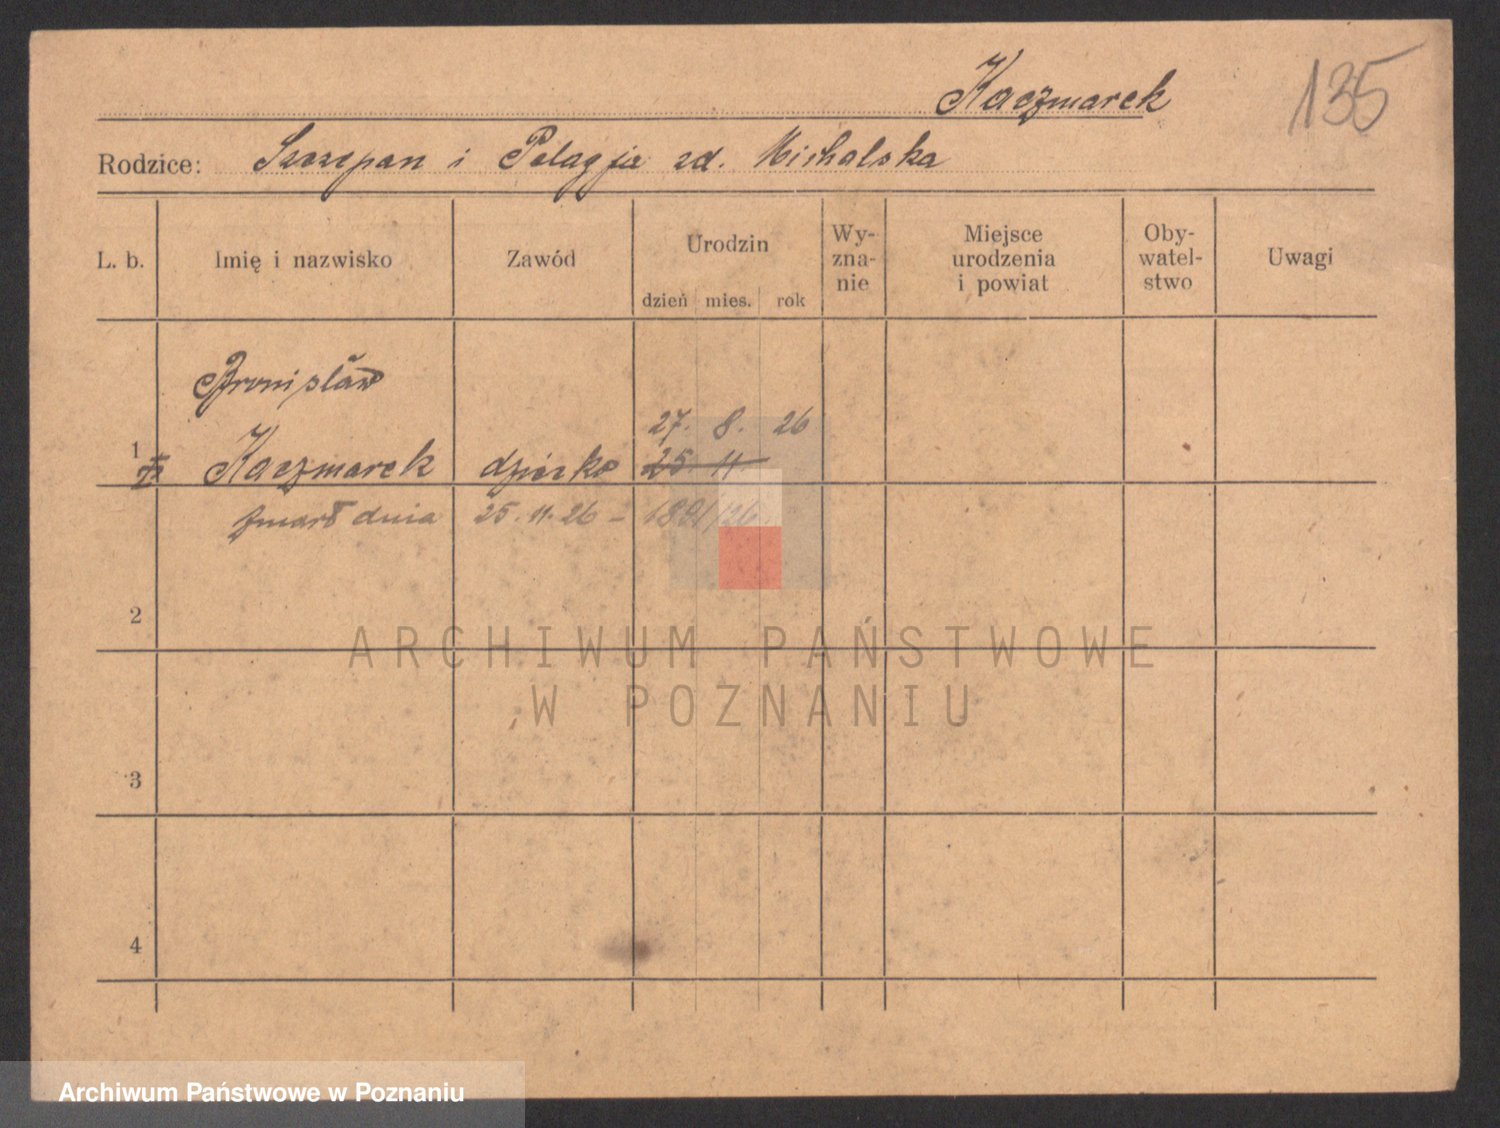 Kaczmarek
135
Rodzice: Szczepan i Pelagja zd. Michalska
L. b. Imię i nazwisko Zawód Urodzin dzień mies. rok Wy-zna-nie Miejsce urodzenia i powiat Oby-watel-stwo Uwagi
Bronisław
27. 8. 26
1 Kaczmarek dziecko 25 11
zmarł dnia 25. 11. 26 -
2
ARCHIWUM PAŃSTWOWE
W POZNANIU
3
4
Archiwum Państwowe w Poznaniu